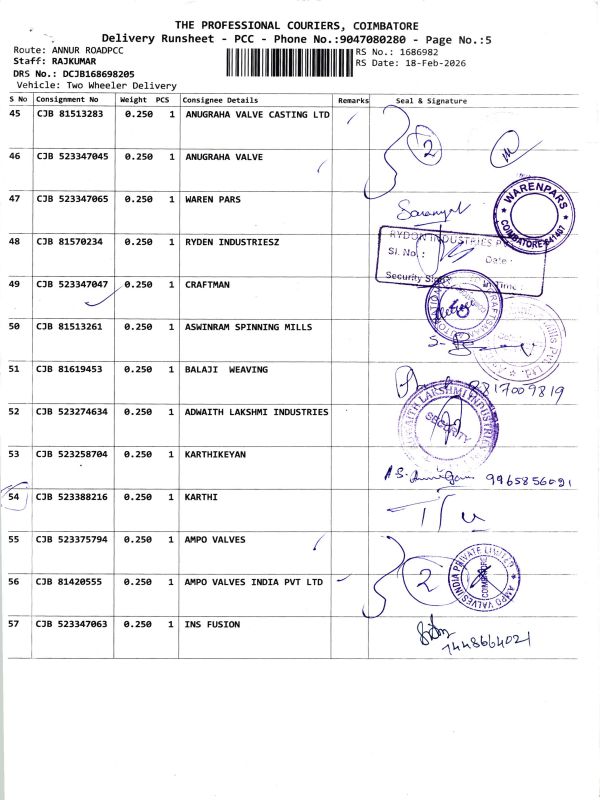 THE PROFESSIONAL COURIERS, COIMBATORE
Delivery Runsheet - PCC - Phone No.:9047080280 - Page No.:5
Route: ANNUR ROADPCC
RS No.: 1686982
Staff: RAJKUMAR
RS Date: 18-Feb-2026
DRS No.: DCJB168698205
Vehicle: Two Wheeler Delivery
S No Consignment No Weight PCS Consignee Details Remarks Seal & Signature
45 CJB 81513283 0.250 1 ANUGRAHA VALVE CASTING LTD
2
46 CJB 523347045 0.250 1 ANUGRAHA VALVE
47 CJB 523347065 0.250 1 WAREN PARS
WARENPARS
COIMBATORE-641407
48 CJB 81570234 0.250 1 RYDEN INDUSTRIESZ
RYDON INDUSTRIES P
Sl. No.:
Date:
Security
In Time:
49 CJB 523347047 0.250 1 CRAFTMAN
50 CJB 81513261 0.250 1 ASWINRAM SPINNING MILLS
Mills Pvt. Ltd
51 CJB 81619453 0.250 1 BALAJI WEAVING
8817009819
52 CJB 523274634 0.250 1 ADWAITH LAKSHMI INDUSTRIES
ADWAITH LAKSHMI INDUSTRIES
SECURITY
53 CJB 523258704 0.250 1 KARTHIKEYAN
9965856091
54 CJB 523388216 0.250 1 KARTHI
55 CJB 523375794 0.250 1 AMPO VALVES
2
AMPO VALVES INDIA PRIVATE LIMITED
COIMBATORE
56 CJB 81420555 0.250 1 AMPO VALVES INDIA PVT LTD
57 CJB 523347063 0.250 1 INS FUSION
7448664021